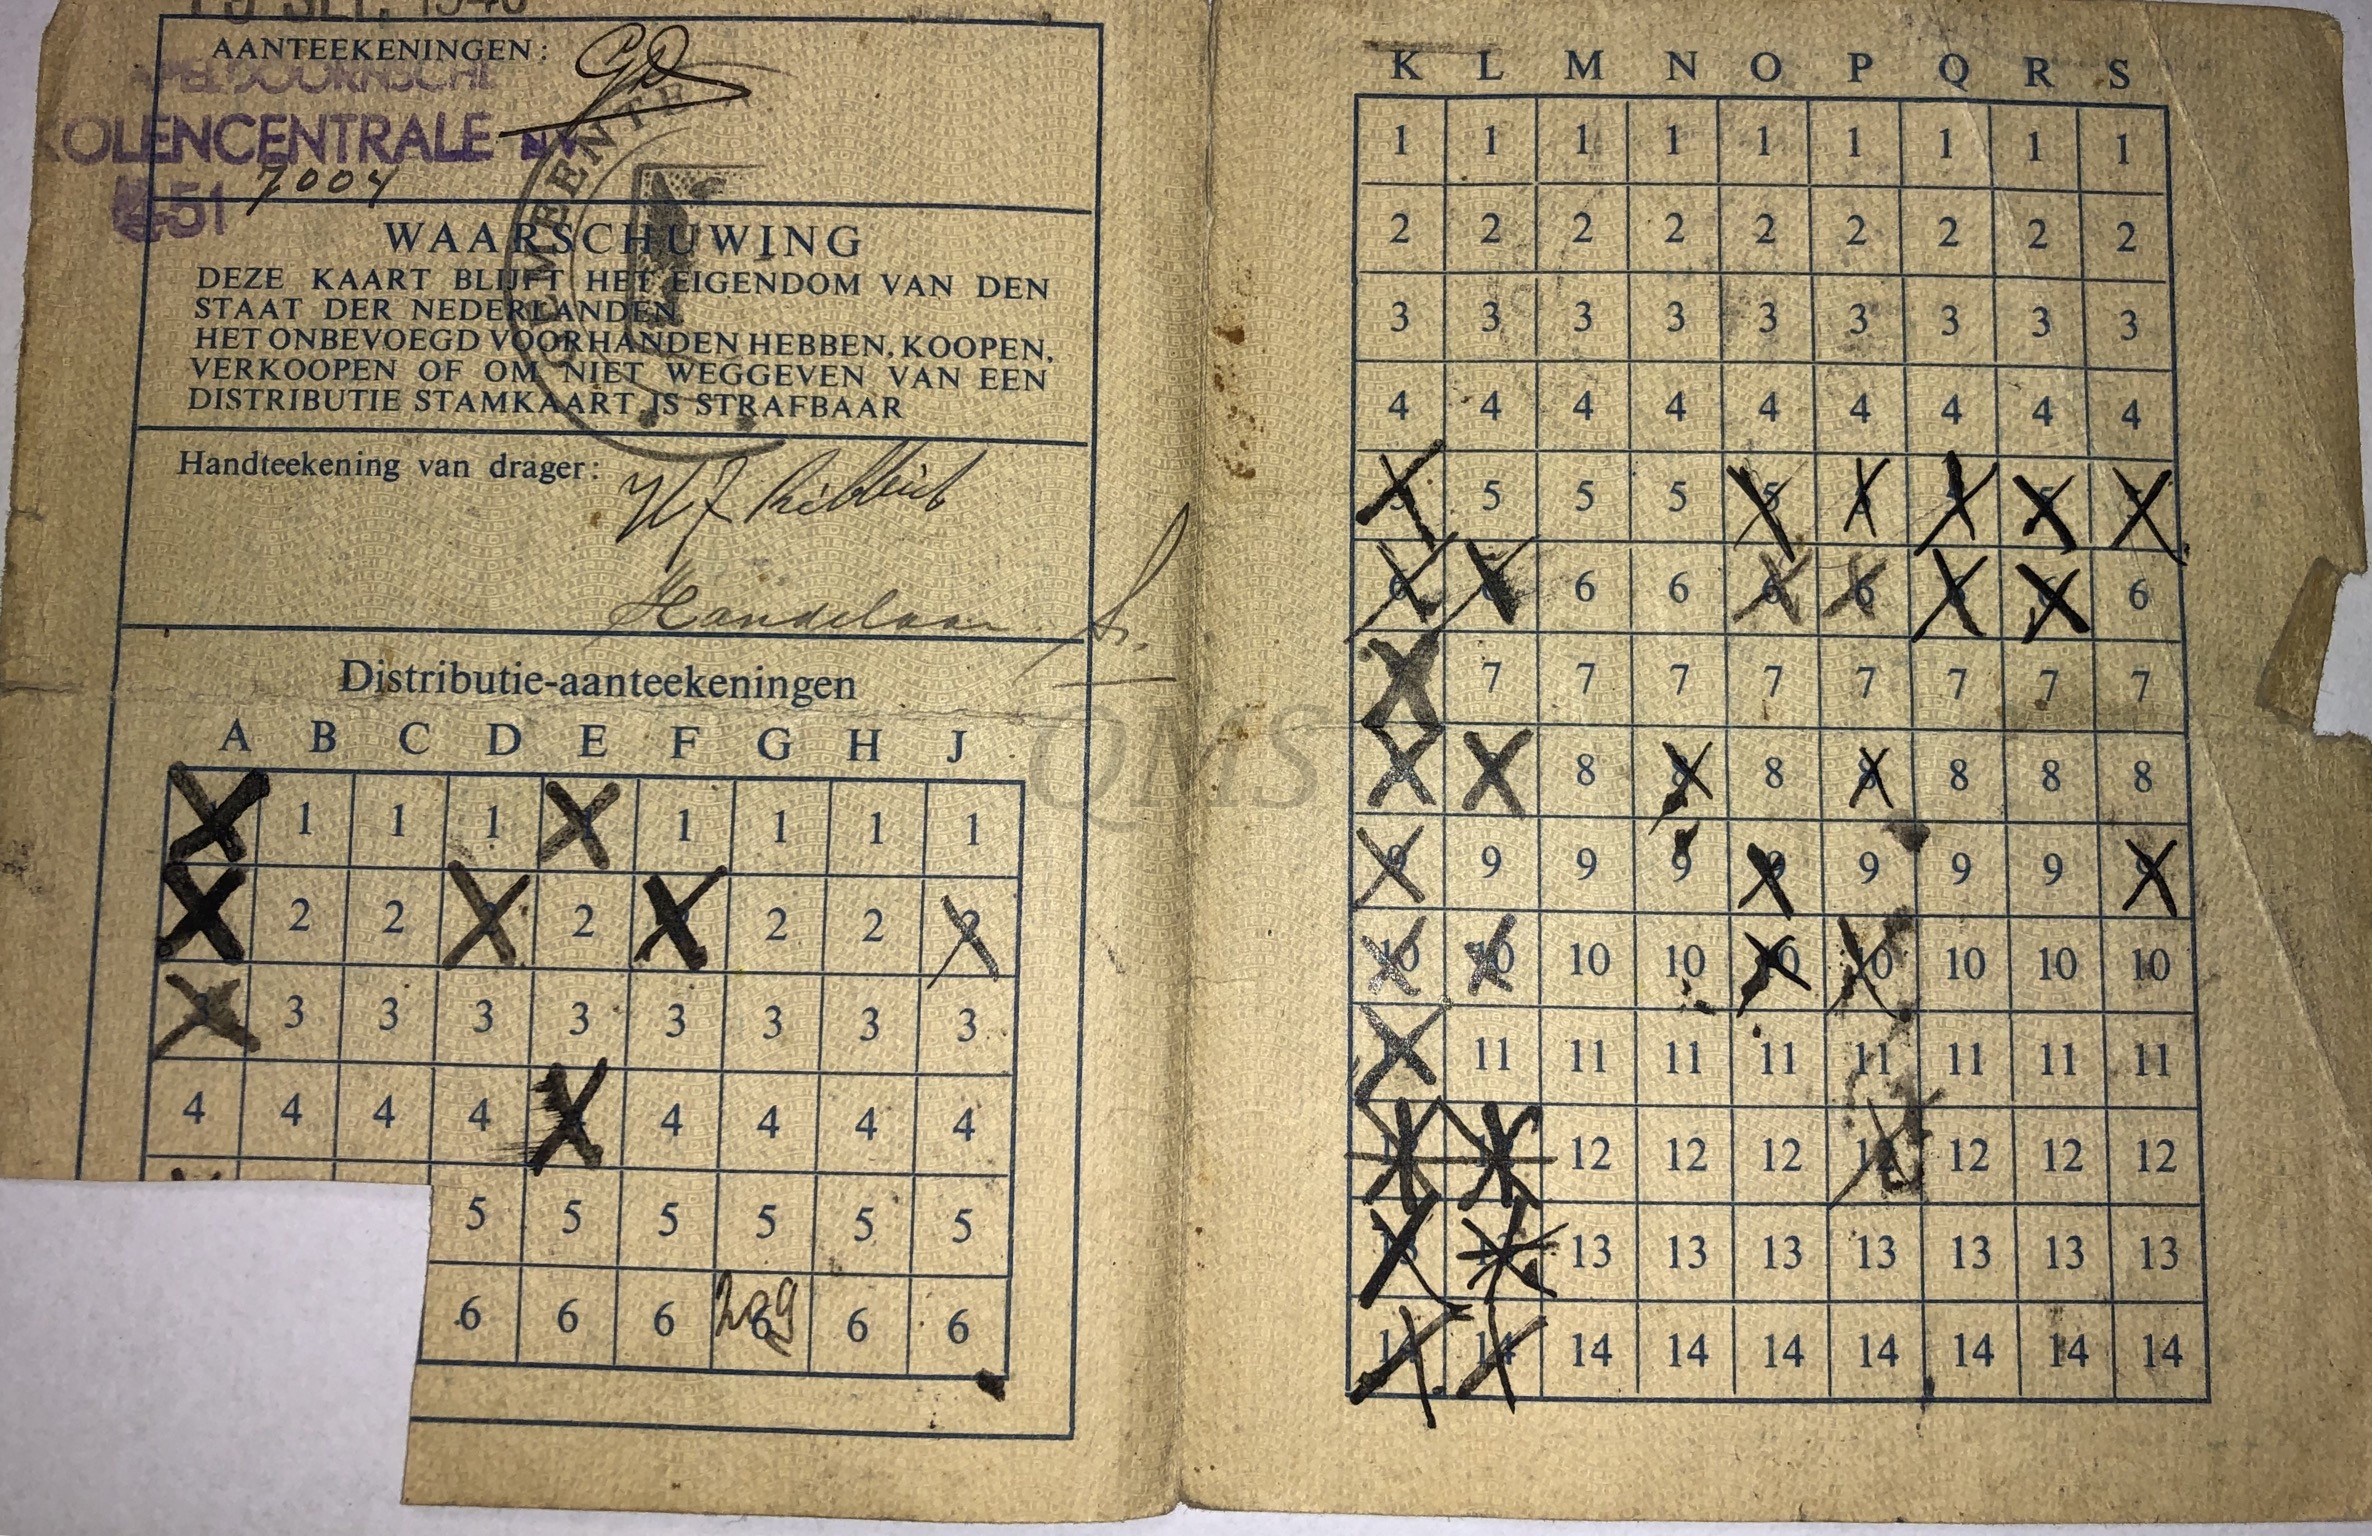 AANTEEKENINGEN:
APELDOORNSCHE
KOLENCENTRALE N.V.
7004
451
GEMEENTE
WAARSCHUWING
DEZE KAART BLIJFT HET EIGENDOM VAN DEN
STAAT DER NEDERLANDEN
HET ONBEVOEGD VOORHANDEN HEBBEN, KOOPEN,
VERKOOPEN OF OM NIET WEGGEVEN VAN EEN
DISTRIBUTIE STAMKAART IS STRAFBAAR
Handteekening van drager:
Handelaar
Distributie-aanteekeningen
A B C D E F G H J
1 1 1 1 1 1
2 2 2 2 2 2
3 3 3 3 3 3 3 3
4 4 4 4 4 4 4 4
5 5 5 5 5 5
6 6 6 6 6 6
209
QMS
K L M N O P Q R S
1 1 1 1 1 1 1 1 1
2 2 2 2 2 2 2 2 2
3 3 3 3 3 3 3 3 3
4 4 4 4 4 4 4 4 4
5 5 5 5
6 6 6 6 6
7 7 7 7 7 7 7 7
8 8 8 8 8 8 8
9 9 9 9 9 9 9 9
10 10 10 10 10 10 10 10 10
11 11 11 11 11 11 11 11
12 12 12 12 12 12 12
13 13 13 13 13 13 13
14 14 14 14 14 14 14 14 14